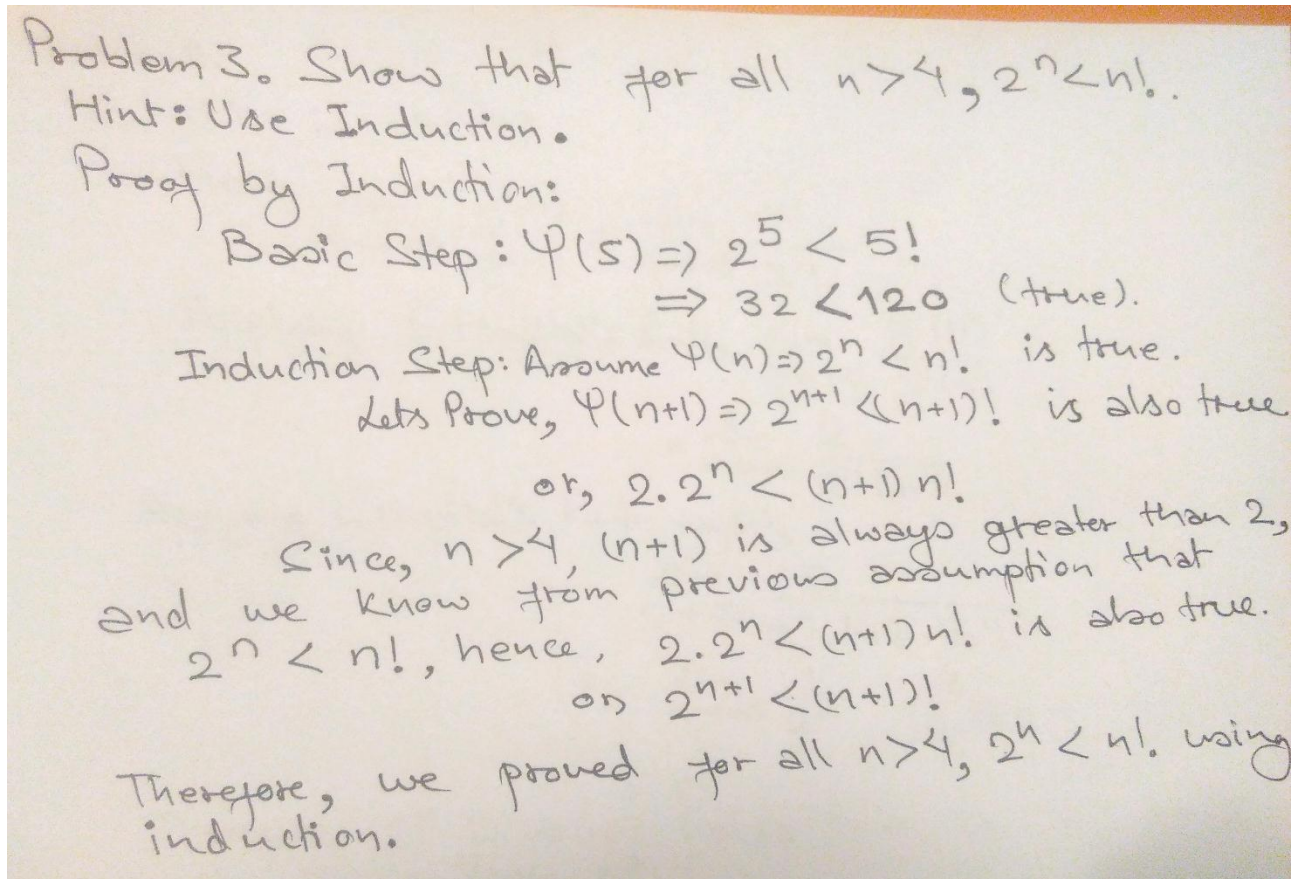 Problem 3. Show that for all n>4, 2^n<n!.
Hint: Use Induction.
Proof by Induction:
Basic Step: φ(5) => 2^5 < 5!
=> 32 < 120 (true).
Induction Step: Assume φ(n) => 2^n < n! is true.
Lets Prove, φ(n+1) => 2^{n+1} < (n+1)! is also true
or, 2.2^n < (n+1) n!
Since, n >4, (n+1) is always greater than 2,
and we know from previous assumption that
2^n < n!, hence, 2.2^n < (n+1) n! is also true.
or, 2^{n+1} < (n+1)!
Therefore, we proved for all n>4, 2^n < n!. using
induction.